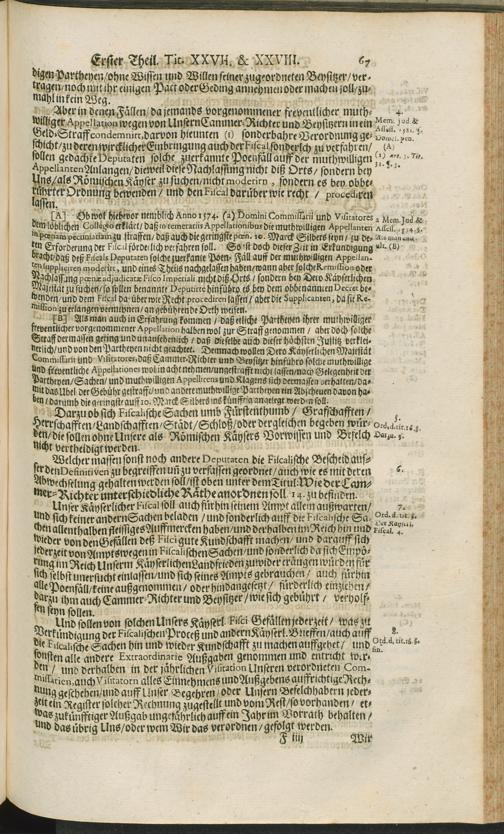 Erster Theil. Tit. XXVII. & XXVIII. 67
digen Partheyen/ohne Wissen und Willen seiner zugeordneten Beysitzer/ver-
tragen/noch mit ihr einigen Pact oder Geding annehmen oder machen soll/zu-
mahl in kein Weg.
Aber in denen Fällen/da jemands vorgenommener freventlicher muth-
williger Appellation wegen von Unsern Cammer-Richter und Beysitzern in ein
Geld-Straff condemnirt, darvon hieunten (1) sonderbahre Verordnung ge-
schicht/zu deren würcklicher Einbringung auch der Fiscal sonderlich zu verfahren/
sollen gedachte Deputaten solche zuerkante Poenfäll auff der muthwilligen
Appellanten Anlangen/dieweil diese Nachlassung nicht diß Orts/sondern bey
Uns/als Römischen Käyser zu suchen/nicht moderirn, sondern es bey obbe-
rührter Ordnung bewenden/und den Fiscal darüber wie recht/procediren
lassen.
[A] Ob wol hiebevor nemblich Anno 1574. (2) Domini Commissarii und Visitatores
dem löblichen Collegio erklärt/daß in temerariis Appellationibus die muthwilligen Appellanten
in poenam pecuniariam zu straffen/daß auch die geringste poen. 10. Marck Silbers seyn/zu de-
ren Erforderung der Fiscal förderlich verfahren soll. So ist doch dieser Zeit in Erkundigung
bracht/daß deß Fiscals Deputaten solche zuerkante Poen-Fäll auff der muthwilligen Appellan-
ten suppliciren moderirt, und eines Theils nachgelassen haben/wann aber solche Remission oder
Nachlassung poenae adjudicatae Fisco Imperiali nicht diß Orts/sondern bey Dero Käyserlichen
Majestät zu suchen/so sollen benannte Deputirte hinführo es bey dem obbenannten Decret be-
wenden/und dem Fiscal darüber wie Recht procediren lassen/aber die Supplicanten, da sie Re-
mission zu erlangen vermeinen/an gebührende Oerth weisen.
[B] Als man auch in Erfahrung kommen/daß etliche Partheyen ihrer muthwilliger
freventlicher vorgenommener Appellation halben wol zur Straff genommen/aber doch solche
Straff dermassen gering und unansehenlich/daß dieselbe auch dieser höchsten Justitz verklei-
nerlich/und von den Partheyen nicht geachtet. Demnach wollen Dero Käyserlichen Majestät
Commissarii und Visitatores/daß Cammer-Richter und Beysitzer hinführo solche muthwillige
und freventliche Appellationes wol in acht nehmen/ungestrafft nicht lassen/nach Gelegenheit der
Partheyen/Sachen/und muthwilligen Appellirens und Klagens sich dermassen verhalten/da-
mit das Ubel der Gebühr gestrafft/und andere muthwillige Partheyen ein Abscheuen davon ha-
ben/darumb die geringste auff 10. Marck Silbers ins künfftig anzulegt werden soll.
Darzu ob sich Fiscalische Sachen umb Fürstenthumb/Grafschafften/
Herrschafften/Landschafften/Städt/Schloß/oder dergleichen begeben wür-
den/die sollen ohne Unsere als Römischen Käysers Vorwissen und Befelch
nicht vertheidigt werden.
Welcher massen sonst noch andere Deputaten die Fiscalische Bescheid auf-
ser den Definitiven zu begreiffen und zu verfassen geordnet/auch wie es mit deren
Abwechselung gehalten werden soll/ist oben unter dem Titul: Wie der Cam-
mer-Richter unterschiedliche Räthe anordnen soll. 14. zu befinden.
Unser Käyserlicher Fiscal soll auch fürhin seinem Ampt allein außwarten/
und sich keiner andern Sachen beladen/und sonderlich auff die Fiscalische Sa-
chen allenthalben fleissiges Auffmercken haben/und derhalben im Reich hin und
wieder von den Gefällen deß Fisci gute Kundschafft machen/und darauff sich
jederzeit von Ampts wegen in Fiscalischen Sachen/und sonderlich da sich Empö-
rung im Reich Unserm Käyserlichen Landfrieden zuwider erängen würden für
sich selbst unersucht einlassen/und sich seines Ampts gebrauchen/auch fürhin
alle Poenfäll/keine außgenommen/oder hindangesetzt/fürderlich einziehen/
darzu ihm auch Cammer-Richter und Beysitzer/wie sich gebührt/verholf-
fen seyn sollen.
Und sollen von solchen Unsers Käyserl. Fisci Gefällen jederzeit/was zu
Verkündigung der Fiscalischen Proceß und andern Käyserl. Brieffen/auch auff
die Fiscalische Sachen hin und wieder Kundschafft zu machen auffgehet/und
sonsten alle andere Extraordinarie Außgaben genommen und entricht wer-
den/und derhalben in der jährlichen Visitation Unsern verordneten Com-
missarien, auch Visitatorn alles Einnehmens und Außgebens auffrichtige Rech-
nung geschehen/und auff Unser Begehren/oder Unsern Befelchhabern jeder-
zeit ein Register solcher Rechnung zugestellt und vom Rest/so vorhanden/et-
was zukünfftiger Außgab ungefährlich auff ein Jahr im Vorrath behalten/
und das übrig Uns/oder wem Wir das verordnen/gefolgt werden.
F iiij Wir
4.
Mem. Jud &
Assess. 1581. §.
Domei. pen.
(A)
(1) par. 3. Tit.
53. §. 3.
2 Mem. Jud &
Assess. 574. §.
alt. (B)
5.
Ord. d. tit. 18. §.
Darzu. 5.
6.
7.
Ord. d. tit. 18. §.
Der Kayserl.
Fiscal. 4.
8.
Ord. d. tit. 18. §.
fin.